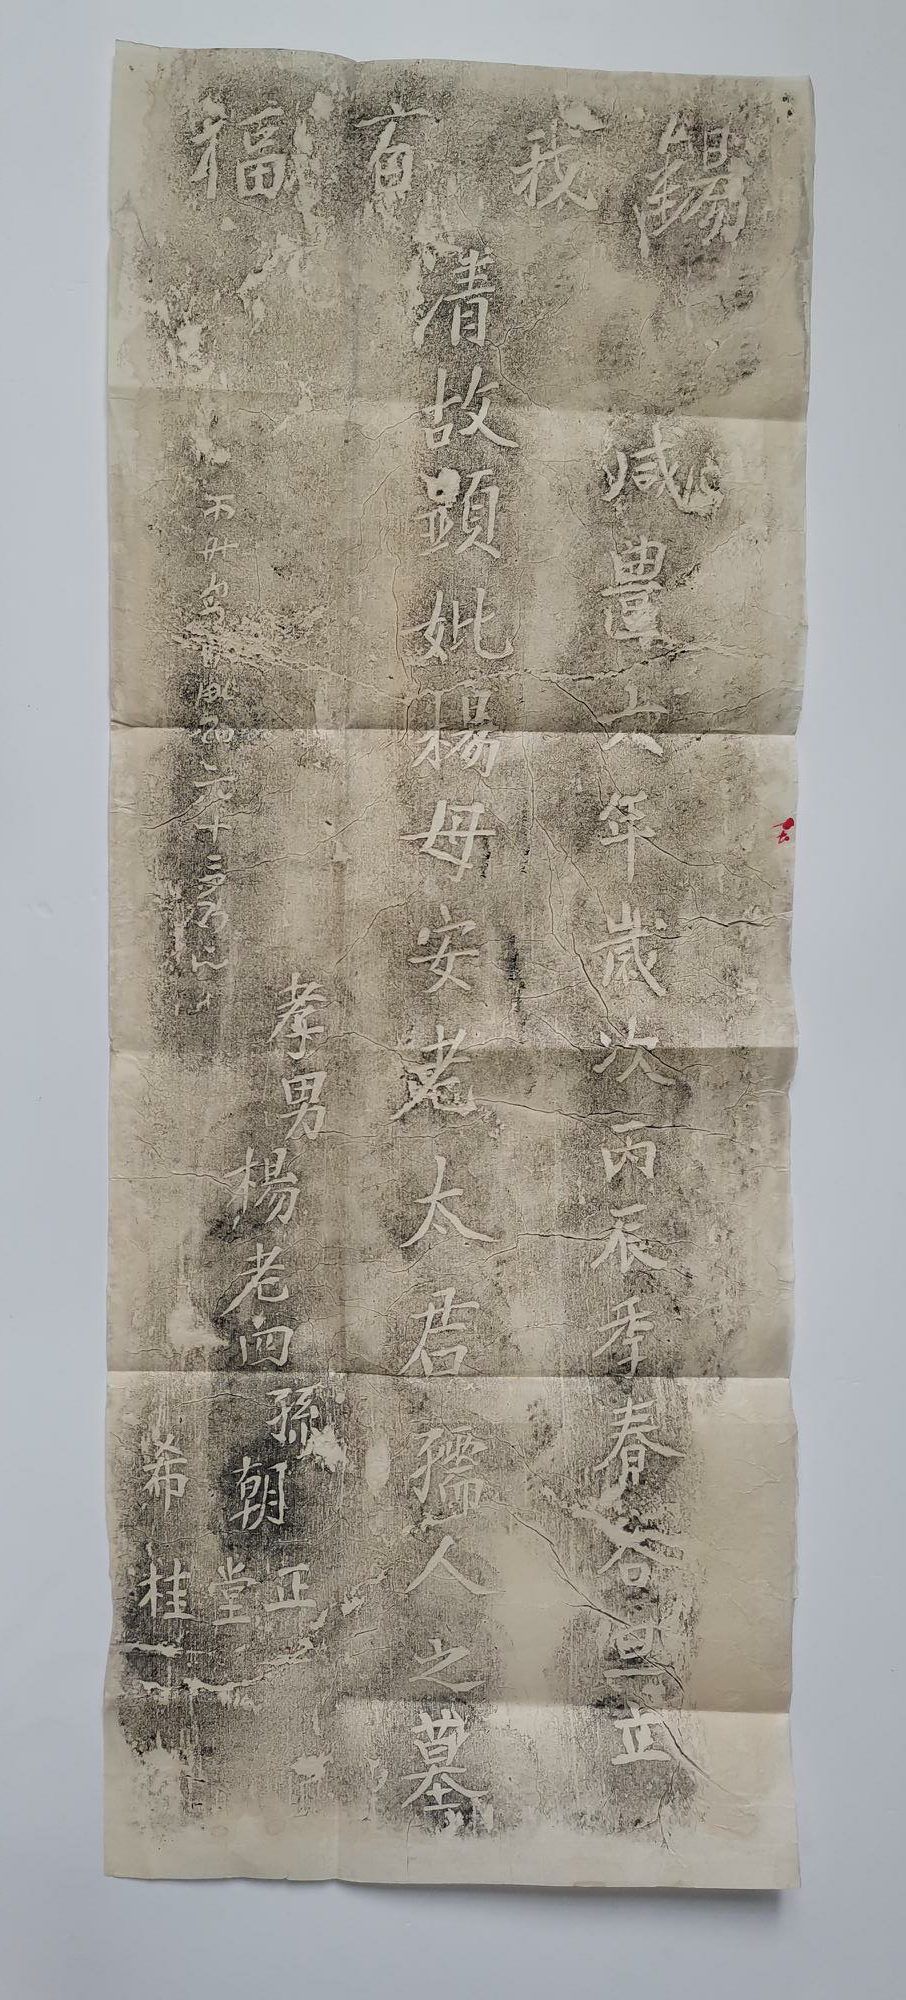 錫我百福
咸豐六年歲次丙辰季春谷旦立
清故顕妣楊母安老太君孺人之墓
孝男楊老四孫朝正
堂
希桂